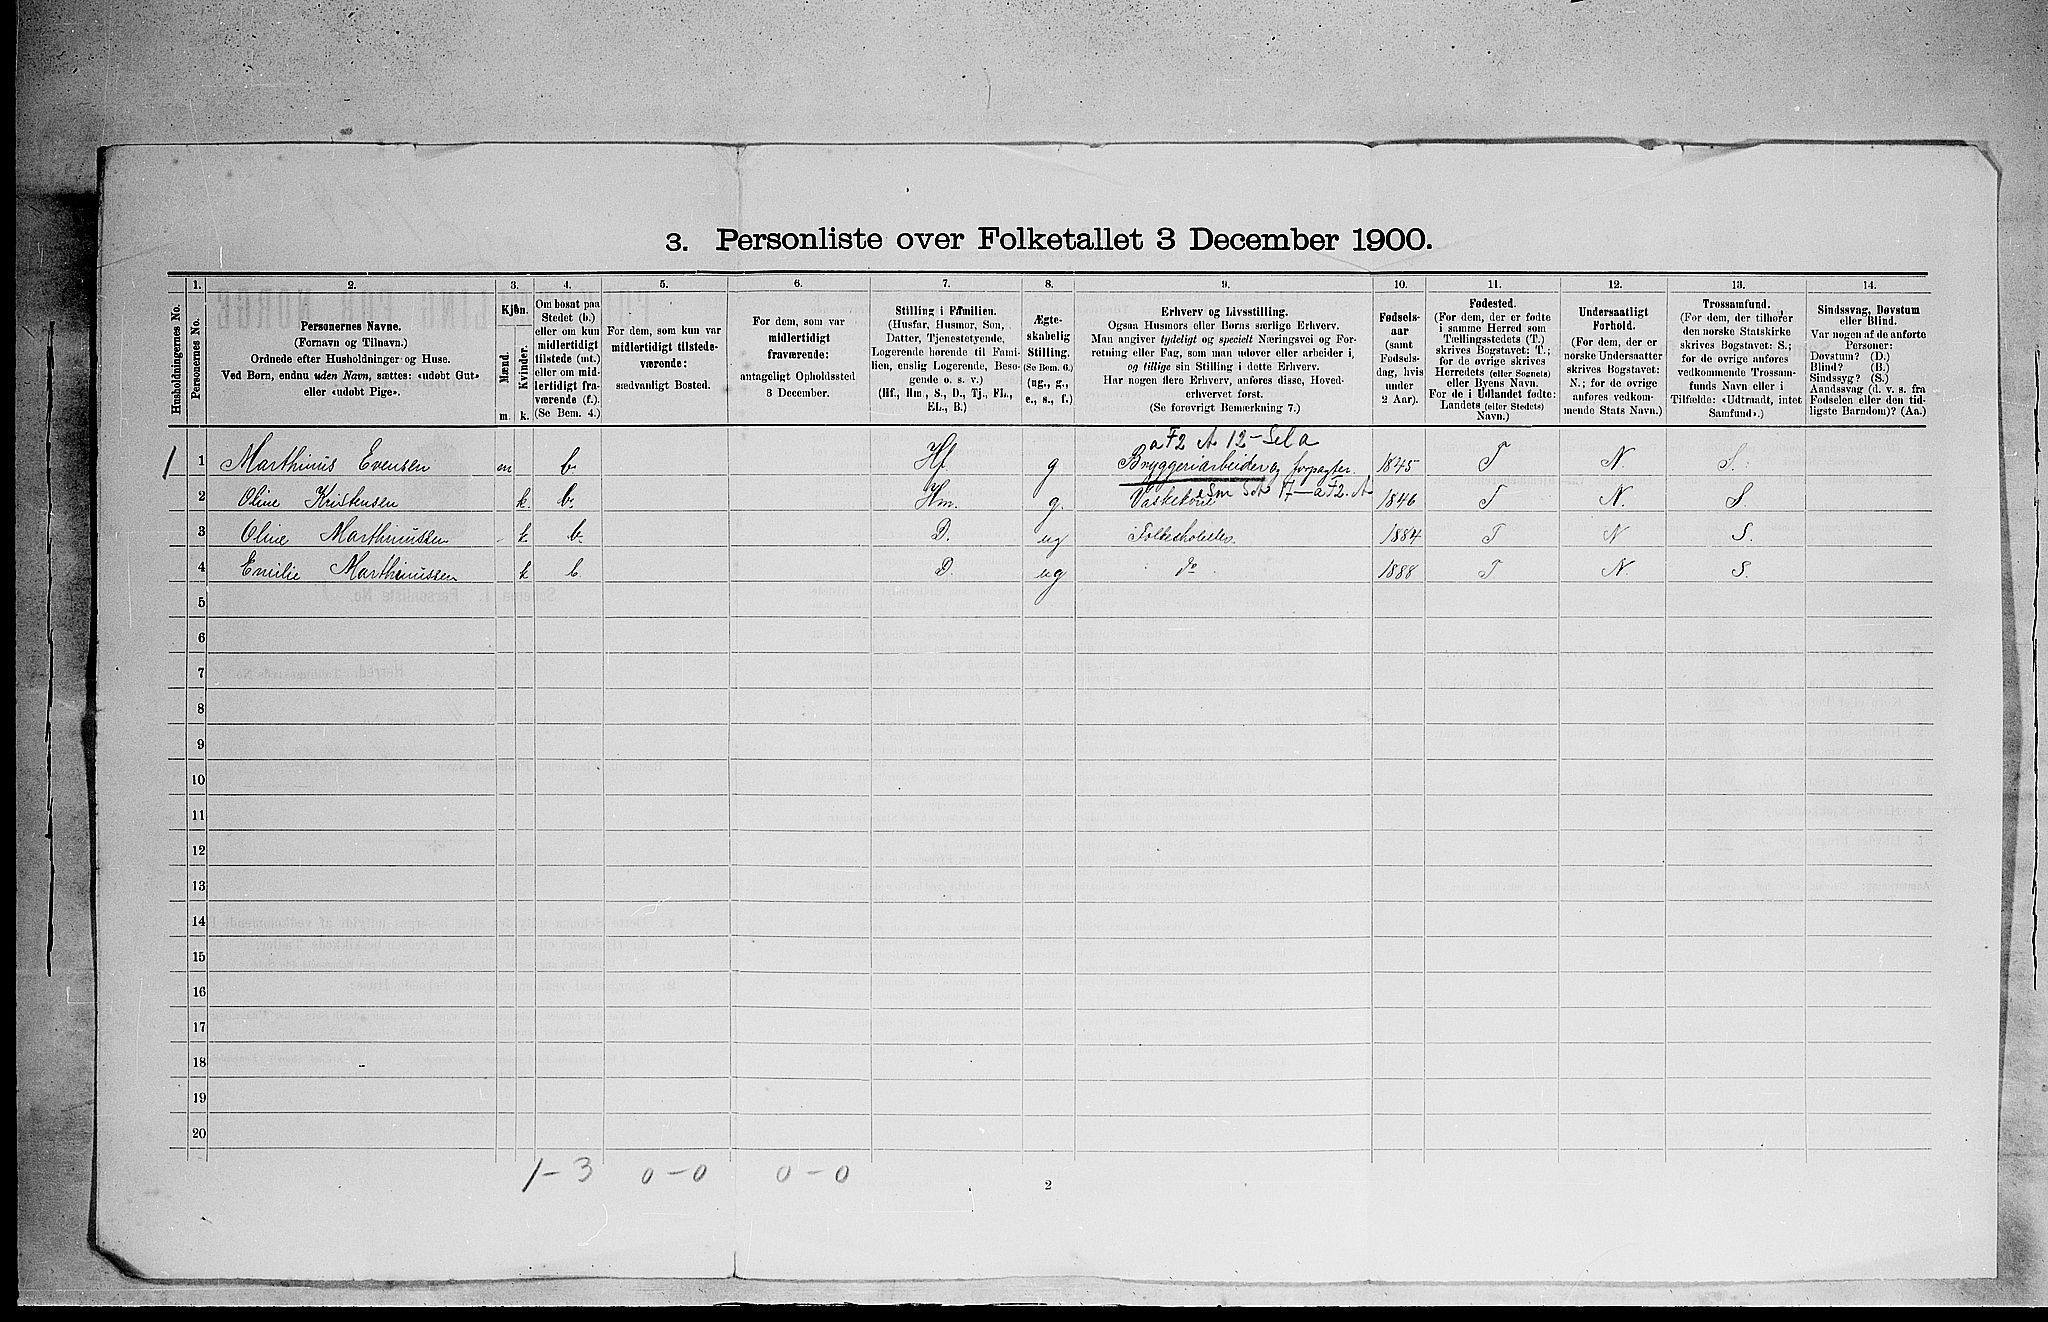 3. Personliste over Folketallet 3 December 1900.
Husholdningernes No.
1.
Personernes No.
2.
Personernes Navne.
(Fornavn og Tilnavn.)
Ordnede efter Husholdninger og Huse.
Ved Børn, endnu uden Navn, sættes: «udøbt Gut»
eller «udøbt Pige».
3.
Kjøn.
Mænd.
Kvinder.
m.
k.
4.
Om bosat paa
Stedet (b.)
eller om kun
midlertidigt
tilstede (mt.)
eller om mid-
lertidigt fra-
værende (f.).
(Se Bem. 4.)
5.
For dem, som kun var
midlertidigt tilstede-
værende:
sædvanligt Bosted.
6.
For dem, som var
midlertidigt
fraværende:
antageligt Opholdssted
3 December.
7.
Stilling i Familien.
(Husfar, Husmor, Søn,
Datter, Tjenestetyende,
Logerende hørende til Fami-
lien, enslig Logerende, Besø-
gende o. s. v.)
(Hf., Hm., S., D., Tj., FL.,
EL., B.)
8.
Ægte-
skabelig
Stilling.
(Se Bem. 6.)
(ug., g.,
e., s., f.)
9.
Erhverv og Livsstilling.
Ogsaa Husmors eller Børns særlige Erhverv.
Man angiver tydeligt og specielt Næringsvei og For-
retning eller Fag, som man udøver eller arbeider i,
og tillige sin Stilling i dette Erhverv.
Har nogen flere Erhverv, anføres disse, Hoved-
erhvervet først.
(Se forøvrigt Bemærkning 7.)
10.
Fødsels-
aar
(samt
Fødsels-
dag, hvis
under
2 Aar).
11.
Fødested.
(For dem, der er fødte
i samme Herred som
Tællingsstedets (T.)
skrives Bogstavet: T.;
for de øvrige skrives
Herredets (eller Sognets)
eller Byens Navn.
For de i Udlandet fødte:
Landets (eller Stedets)
Navn.)
12.
Undersaatligt
Forhold.
(For dem, der er
norske Undersaatter
skrives Bogstavet:
N.; for de øvrige
anføres vedkom-
mende Stats Navn.)
13.
Trossamfund.
(For dem, der tilhører
den norske Statskirke
skrives Bogstavet: S.;
for de øvrige anføres
vedkommende Trossam-
funds Navn eller i
Tilfælde: «Udtraadt, intet
Samfund».)
14.
Sindssvag, Døvstum
eller Blind.
Var nogen af de anførte
Personer:
Døvstum? (D.)
Blind? (B.)
Sindssyg? (S.)
Aandssvag (d. v. s. fra
Fødselen eller den tid-
ligste Barndom)? (Aa.)
1 1 Marthinus Evensen m b. Hf. g Bryggeriarbeider og forpagter. 1845 T N. S.
2 Oline Kristensen k. b. Hm. g. Vaskekone 1846 T N. S.
3 Oline Marthinussen k b. D. ug Folkeskoleelev. 1884 T N S.
4 Emilie Marthinussen k b. D. ug do 1888 T N. S.
5
6
7
8
9
10
11
12
13
14
15
16
17
18
19
20
1 - 3 0 - 0 0 - 0
2